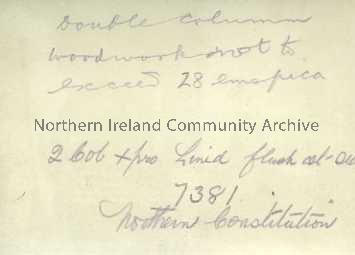 Double Column
Woodwork not to
exceed 28 ems pica
Northern Ireland Community Archive
2 Col + pro Lined flush cut-
7381.
Northern Constitution